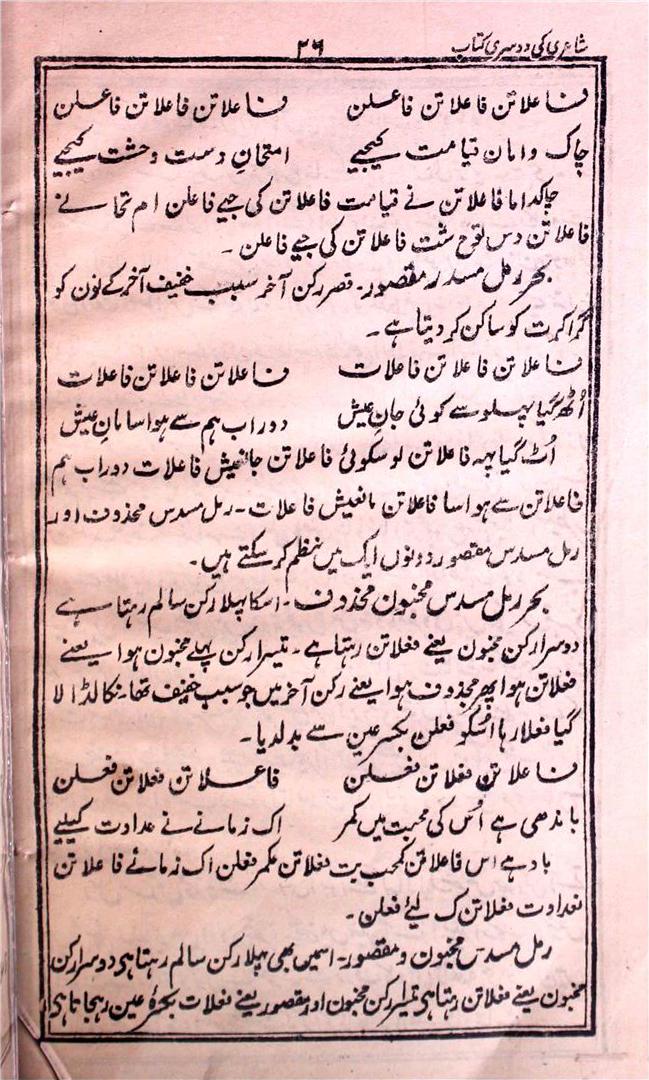 شاعری کی دوسری کتاب ۲۶
فاعلاتن فاعلاتن فاعلن فاعلاتن فاعلاتن فاعلن
چاک دامان قیامت کیجیے امتحانِ دست وحشت کیجیے
چاکداما فاعلاتن نے قیامت فاعلاتن کی جیے فاعلن ام تحانے
فاعلاتن دس توح شت فاعلاتن کی جیے فاعلن ۔
بحر رمل مسدس مقصور ۔ قصر رکن آخر سبب خفیف آخر کے نون کو
گرا کر ت کو ساکن کر دیتا ہے ۔
فاعلاتن فاعلاتن فاعلات فاعلاتن فاعلاتن فاعلات
اُٹھ گیا پہلو سے کوئی جانِ عیش دور اب ہم سے ہوا سامانِ عیش
اُٹ گیا پہہ فاعلاتن لو سکوئی فاعلاتن جانعیش فاعلات دور اب ہم
فاعلاتن سے ہوا سا فاعلاتن مانعیش فاعلات ۔ رمل مسدس محذوف اور
رمل مسدس مقصور دونوں ایک میں نظم کر سکتے ہیں ۔
بحر رمل مسدس مخبون محذوف ۔ اسکا پہلا رکن سالم رہتا ہے
دوسرا رکن مخبون یعنے فعلاتن رہتا ہے ۔ تیسرا رکن پہلے مخبون ہوا یعنے
فعلاتن ہوا پھر محذوف ہوا یعنے رکن آخر میں جو سبب خفیف تھا ۔ نکالڈالا
گیا فعلا رہا اسُکو فعلن بکسر عین سے بدلدیا ۔
فاعلاتن فعلاتن فعلن فاعلاتن فعلاتن فعلن
باندھی ہے اُس کی محبت میں کمر اک زمانے نے عداوت کیلیے
باد ہے اس فاعلاتن کمحب بت فعلاتن مکمر فعلن اک زمانے فاعلاتن
نعداوت فعلاتن ک لیئے فعلن ۔
رمل مسدس مخبون و مقصور ۔ اسمیں بھی پہلا رکن سالم رہتا ہی دوسرا رکن
مخبون یعنے فعلاتن رہتا ہی تیسرا رکن مخبون اور مقصور یعنے فعلات بکسرۂ عین رہجاتا ہی